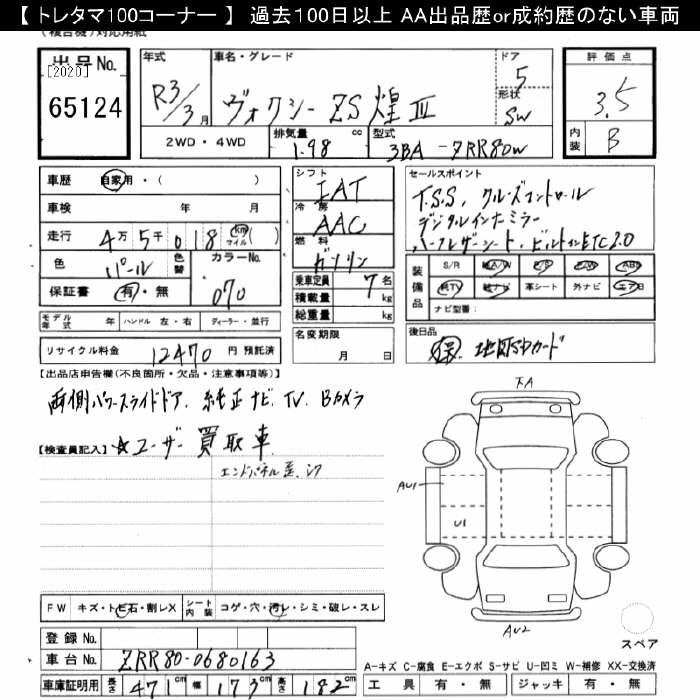 【 トレタマ100コーナー 】 過去100日以上 AA出品歴or成約歴のない車両
(複合機)対応用紙
出品No.
[2020]
65124
年式
R3/3月
車名・グレード
ヴォクシー ZS 煌Ⅲ
ドア
5
形状
SW
評価点
3.5
内装
B
2WD・4WD
排気量
1.98
cc
型式
3BA-ZRR80W
車歴
自家用・( )
車検
年 月
走行
4万5千018 km マイル ( )
色
パール
色替
カラーNo.
070
保証書
有・無
シフト
IAT
冷房
AAC
燃料
ガソリン
乗車定員
7名
積載量
kg
総重量
kg
セールスポイント
T.S.S、クルーズコントロール
デジタルインナーミラー
ハーフレザーシート、ビルトインETC2.0
装備品
S/R
純A/W
P/S
P/W
ABS
純TV
純ナビ
革シート
外ナビ
エアB
ナビ型番:
モデル年式
年
ハンドル
左・右
ディーラー・並行
名変期限
月 日
後日品
保、地図SDカード
リサイクル料金
12470
円 預託済
【出品店申告欄(不良箇所・欠品・注意事項等)】
両側パワースライドドア、純正ナビ、TV、Bカメラ
【検査員記入】
☆ユーザー買取車
エンドパネル歪、シワ
下A
AU1
U1
AU2
スペア
FW
キズ・トビ石・割レX
シート内装
コゲ・穴・汚レ・シミ・破レ・スレ
登録 No.
車台 No.
ZRR80-0680163
車庫証明用
長さ
471
cm
幅
173
cm
高さ
182
cm
A-キズ C-腐食 E-エクボ S-サビ U-凹ミ W-補修 XX-交換済
工具
有・無
ジャッキ
有・無